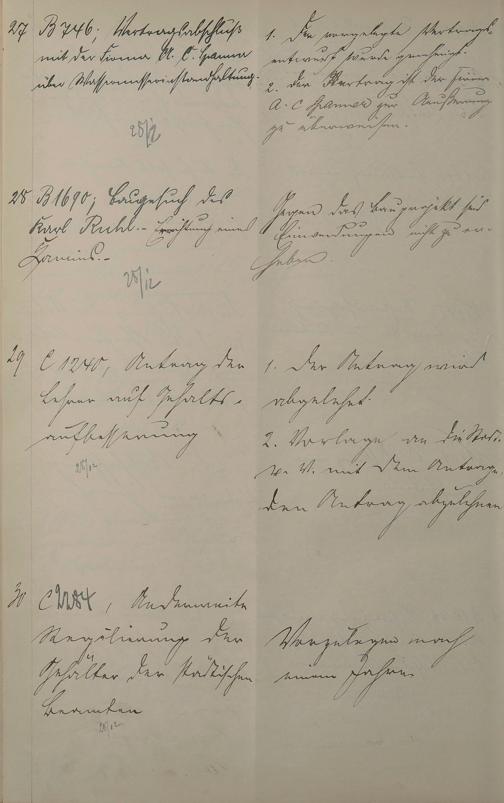 27 B 746; Vertragsabschluß
mit der Firma A. C. Spanner
über Wassermesserinstandhaltung.
25/12
1. Der vorgelegte Vertrags-
entwurf wurde genehmigt.
2. Der Vertrag ist der Firma
A. C. Spanner zur Äußerung
zu überweisen.
28 B 1690; Baugesuch des
Karl Ruhl. - Errichtung eines
Kamins. -
25/12
Gegen das Bauprojekt sind
Einwendungen nicht zu er-
heben.
29 C 1240, Antrag der
Lehrer auf Gehalts-
aufbesserung
25/12
1. Der Antrag wird
abgelehnt.
2. Vorlage an die Stadt-
v. V. mit dem Antrage,
den Antrag abzulehnen
30 C 2284, Anderweite
Regulierung der
Gehälter der städtischen
Beamten
25/12
Vorzulegen nach
einem Jahre.